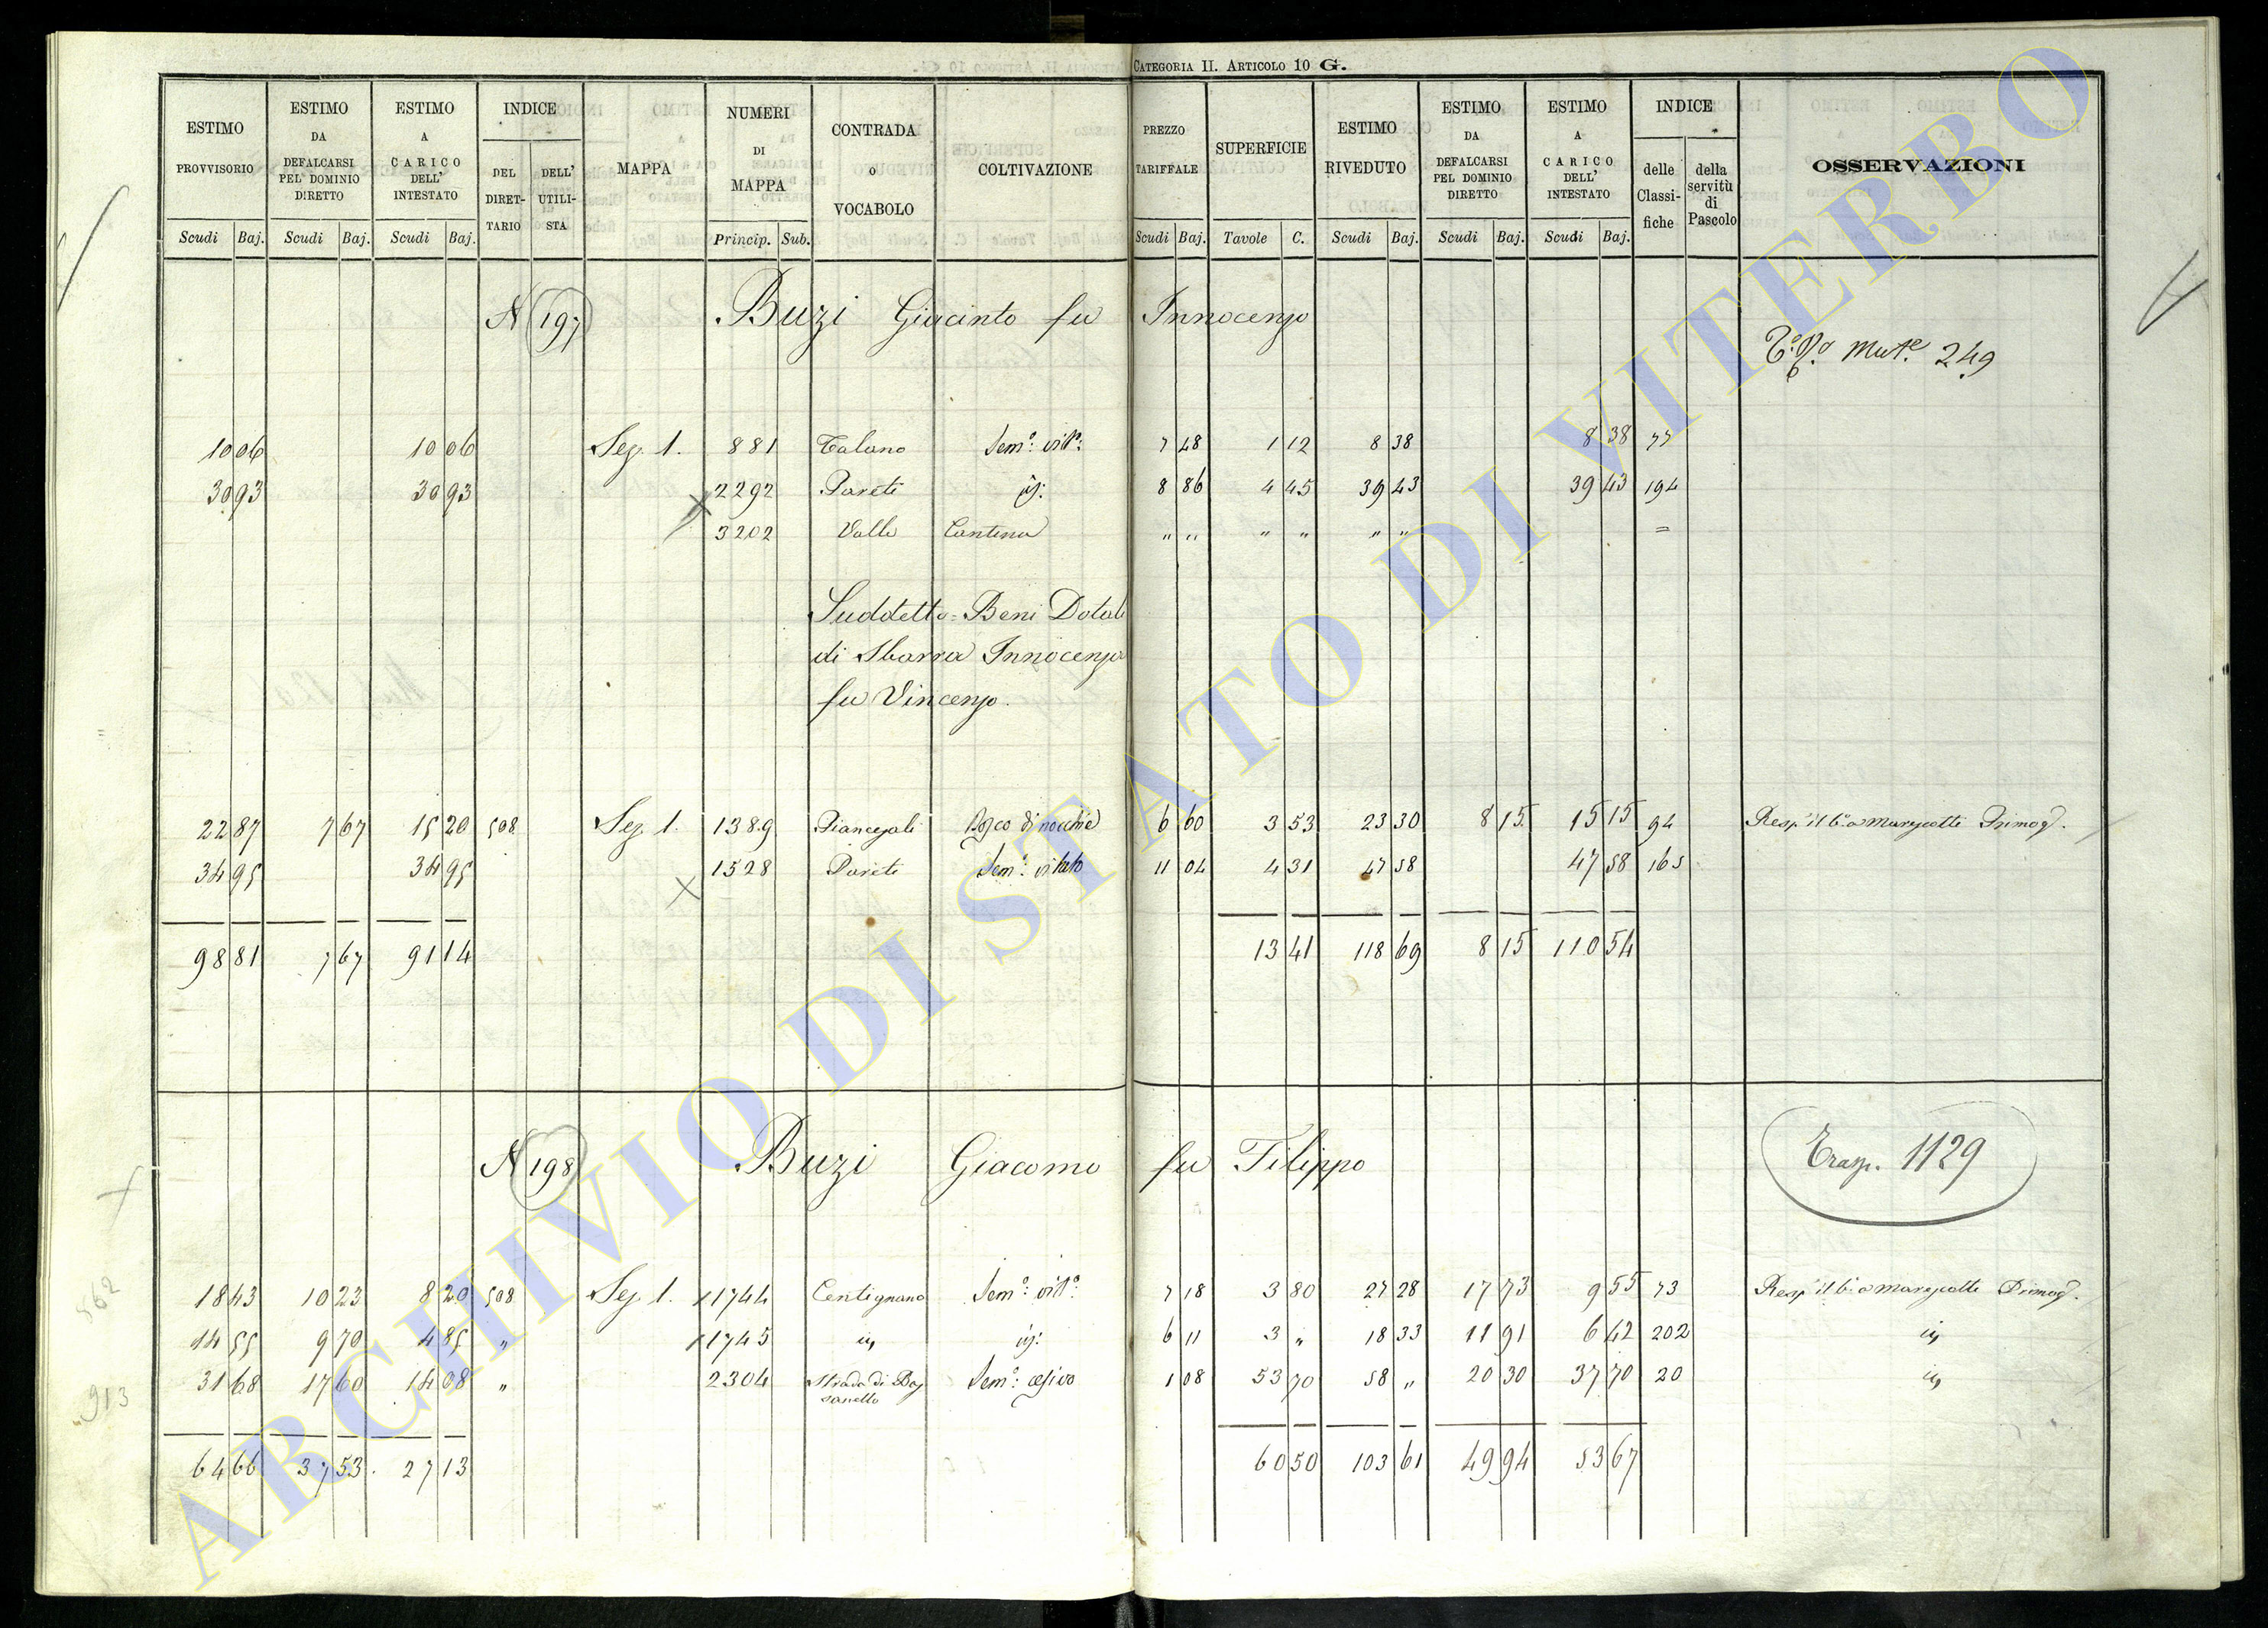 CATEGORIA II. ARTICOLO 10 G.
ESTIMO PROVVISORIO Scudi Baj.
ESTIMO DA DEFALCARSI PEL DOMINIO DIRETTO Scudi Baj.
ESTIMO A CARICO DELL' INTESTATO Scudi Baj.
INDICE DEL DIRETTARIO DELL' UTILISTA
MAPPA
NUMERI DI MAPPA Princip. Sub.
CONTRADA o VOCABOLO
COLTIVAZIONE
PREZZO TARIFFALE Scudi Baj.
SUPERFICIE Tavole C.
ESTIMO RIVEDUTO Scudi Baj.
ESTIMO DA DEFALCARSI PEL DOMINIO DIRETTO Scudi Baj.
ESTIMO A CARICO DELL' INTESTATO Scudi Baj.
INDICE delle Classifiche della servitù di Pascolo
OSSERVAZIONI
N 197 Buzi Giacinto fu Innocenzo
Mut.e 249
10 06 10 06 Sez. 1. 881 Talano Sem.o vit.o 7 48 1 12 8 38 8 38 77
30 93 30 93 2292 Pareti id: 8 86 4 45 39 43 39 43 194
3202 Valle Cantina " " " " " " =
Suddetto = Beni Dotali
di Sbarra Innocenza
fu Vincenzo.
22 87 7 67 15 20 508 Sez. 1. 1389 Piancegali Bosco di nocchie 6 60 3 53 23 30 8 15 15 15 94
34 95 34 95 1528 Pareti Sem.o vitato 11 04 4 31 47 58 47 58 165
98 81 7 67 91 14 13 41 118 69 8 15 110 54
N 198 Buzi Giacomo fu Filippo
Trasp. 1129
18 43 10 23 8 20 508 Sez. 1. 1744 Centignano Sem.o vit.o 7 18 3 80 27 28 17 73 9 55 73
14 55 9 70 4 85 " 1745 id id: 6 11 3 " 18 33 11 91 6 42 202 id
31 68 17 60 14 08 " 2304 Strada di Bas
sanello Sem.o cesivo 1 08 53 70 58 " 20 30 37 70 20 id
64 66 37 53 27 13 60 50 103 61 49 94 53 67
562
913
ARCHIVIO DI STATO DI VITERBO